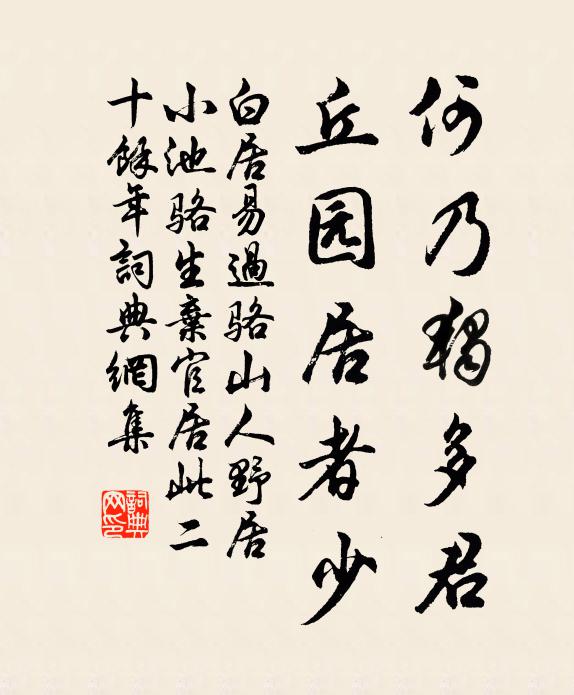 何乃獨多君
丘园居者少
白居易過骆山人野居
小池骆生棄官居此二
十餘年詞典網集
詞典网印